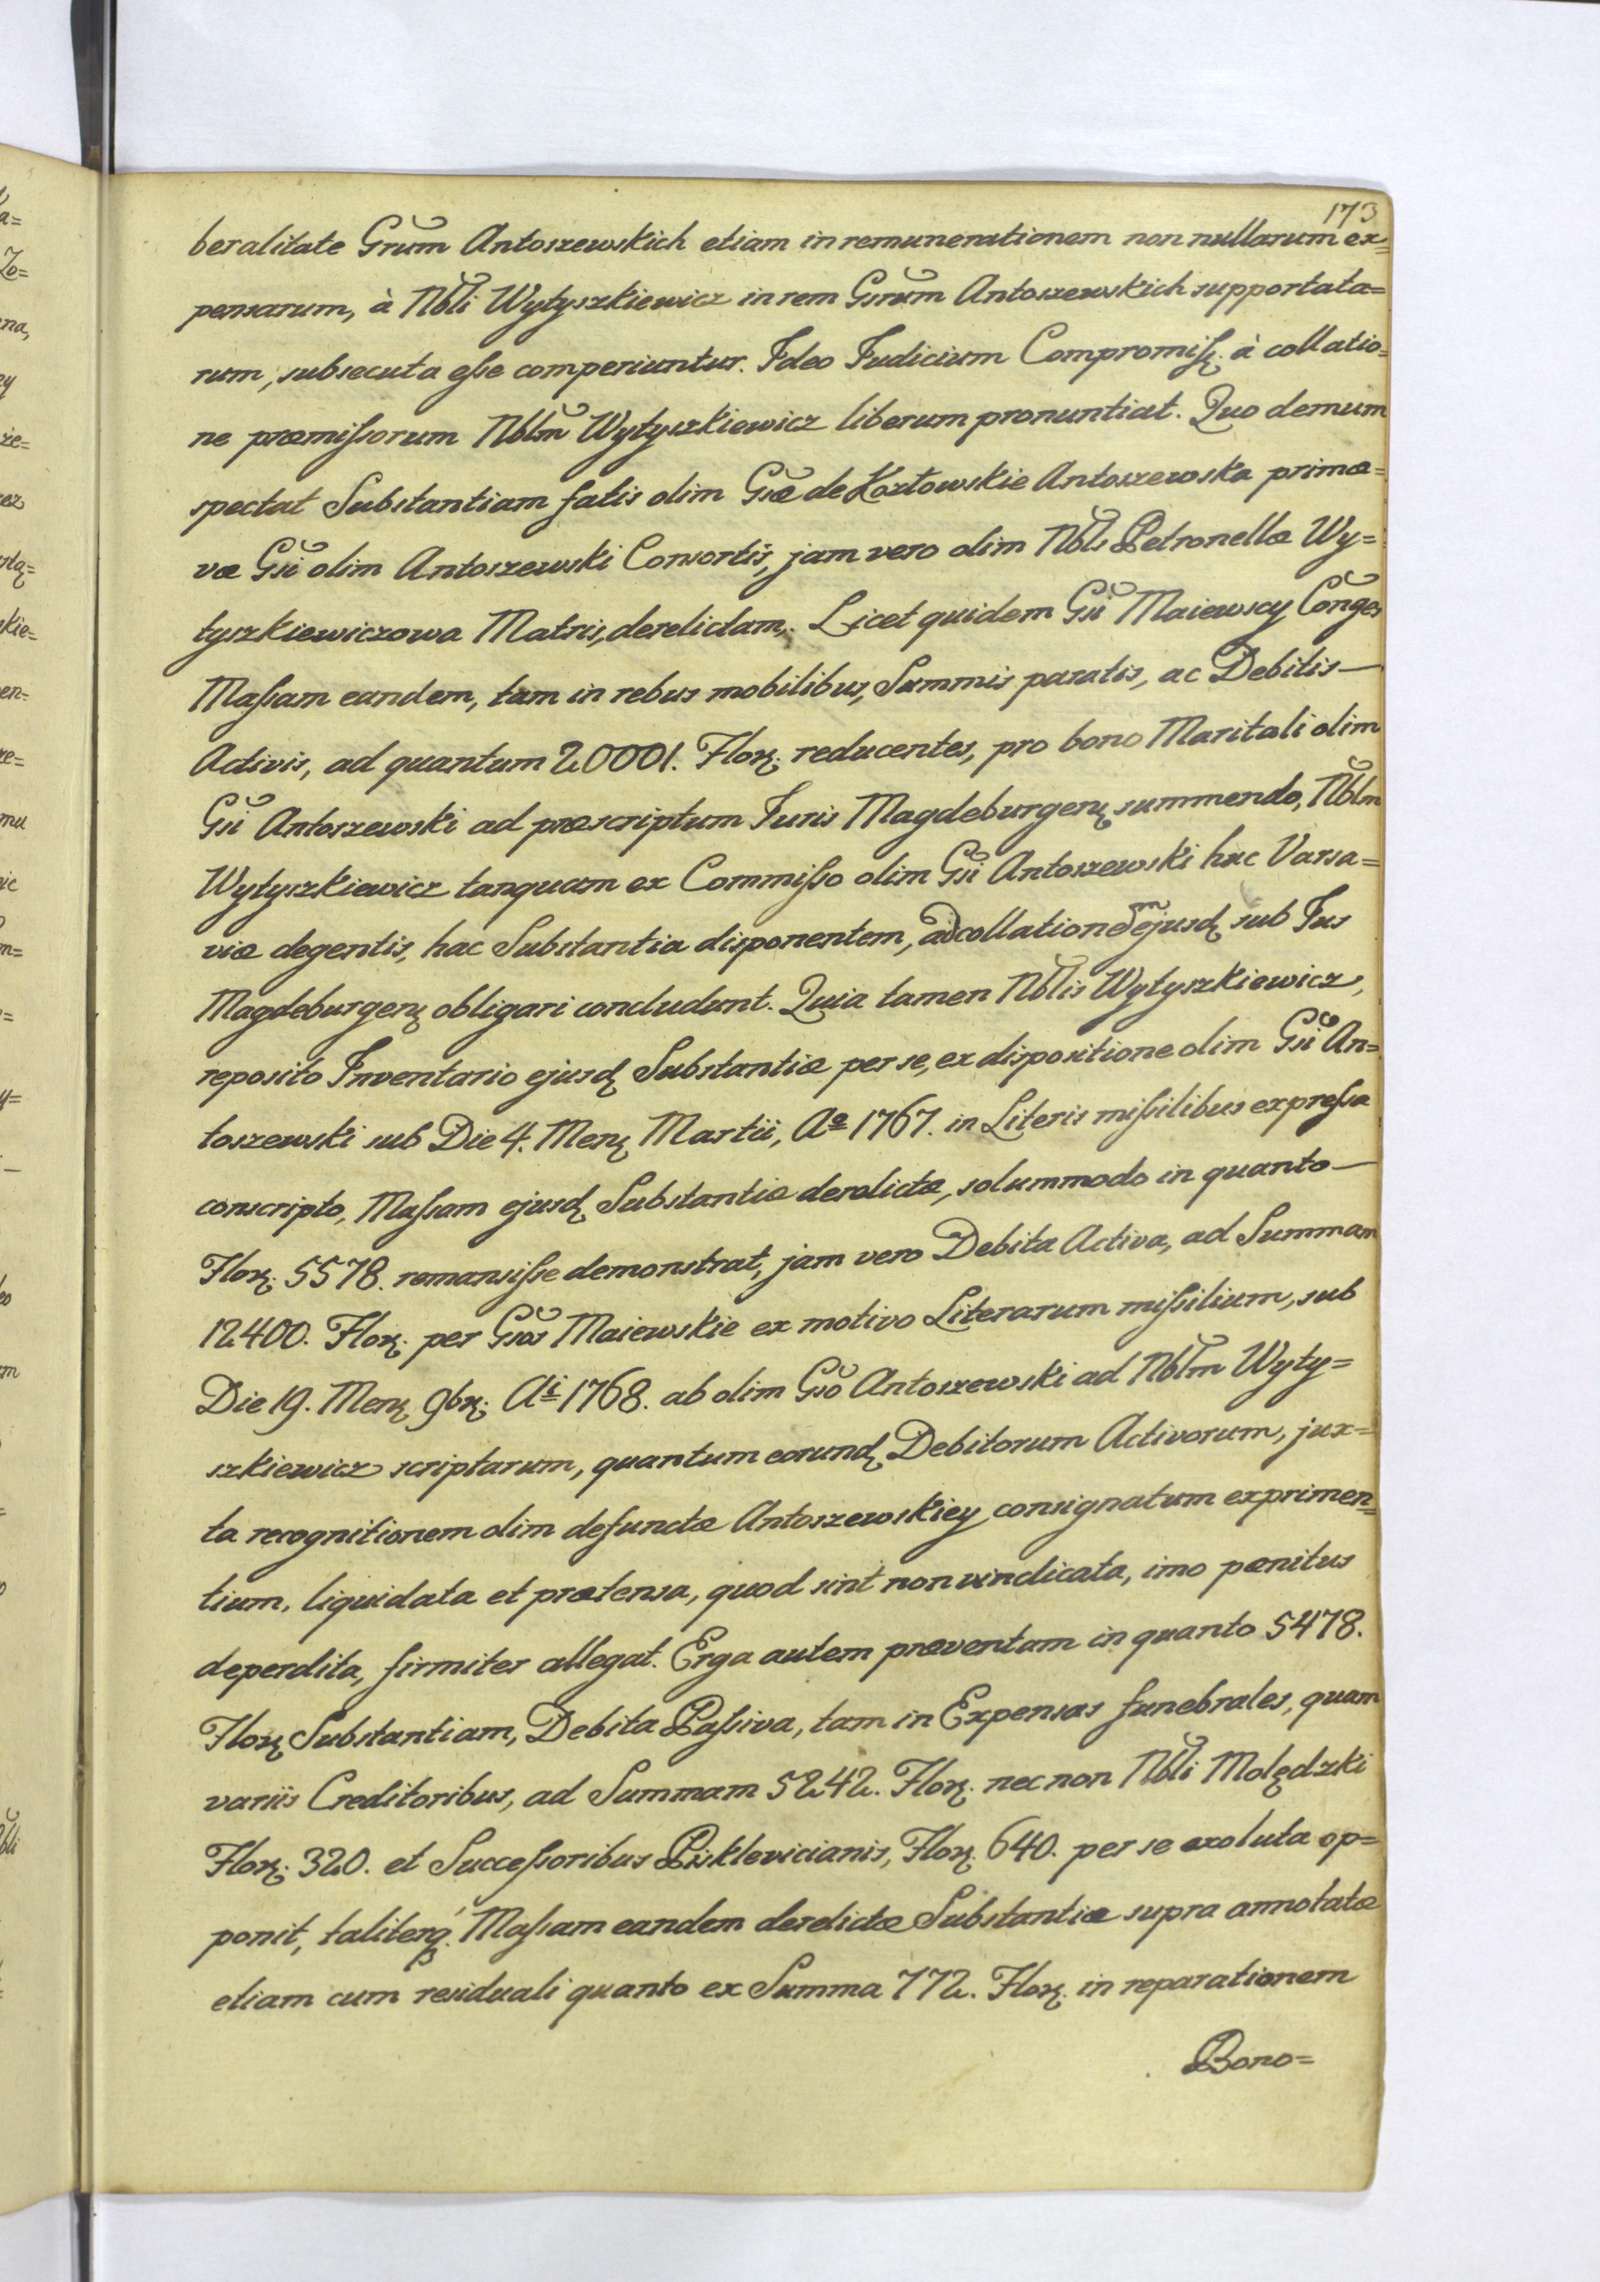 173
beralitate Grum Antoszewskich etiam in remunerationem non nullarum ex=
pensarum, à Nbli Wytyszkiewicz in rem Gsrum Antoszewskich supportata=
rum, subsecuta eſse comperiuntur. Ideo Iudicium Compromiſs. à collatio=
ne præmiſsorum Nblm Wytyszkiewicz liberum pronuntiat. Quo demum
spectat Substantiam fatis olim Gsæ de Kozłowskie Antoszewska primæ=
væ Gsi olim Antoszewski Consortis, jam vero olim Nblis Petronellæ Wy=
tyszkiewiczowa Matris, derelictam. Licet quidem Gsi Maiewscy Conges
Maſsam eandem, tam in rebus mobilibus, Summis paratis, ac Debitis—
Activis, ad quantum 20001. Flor. reducentes, pro bono Maritali olim
Gsi Antoszewski ad præscriptum Iuris Magdeburgen summendo, Nblm
Wytyszkiewicz tanquam ex Commiſso olim Gsi Antoszewski hac Varsa=
viæ degentis, hac Substantia disponentem, ad collationem ejusd sub Ius
Magdeburgen obligari concludunt. Quia tamen Nblis Wytyszkiewicz,
reposito Inventario ejusd Substantiæ per se, ex dispositione olim Gsi An=
toszewski sub Die 4. Mens Martii, Aº 1767. in Literis miſsilibus expreſsa
conscripto, Maſsam ejusd Substantiæ derelictæ, solummodo in quanto—
Flor. 5578. remansiſse demonstrat, jam vero Debita Activa, ad Summam
12400. Flor. per Gsos Maiewskie ex motivo Literarum miſsilium, sub
Die 19. Mens 9br. Ai 1768. ab olim Gso Antoszewski ad Nblm Wyty=
szkiewicz scriptarum, quantum eorund Debitorum Activorum, jux=
ta recognitionem olim defunctæ Antoszewskiey consignatum exprimen=
tium, liquidata et prætensa, quod sint non vindicata, imo pænitus
deperdita, firmiter allegat. Erga autem præventam in quanto 5478.
Flor Substantiam, Debita Paſsiva, tam in Expensas funebrales, quam
variis Creditoribus, ad Summam 5242. Flor. nec non Nbli Molędzki
Flor. 320. et Succeſsoribus Pisklevicianis, Flor. 640. per se exoluta op=
ponit, taliterq. Maſsam eandem derelictæ Substantiæ supra annotatæ
etiam cum residuali quanto ex Summa 772. Flor. in reparationem
Bono=